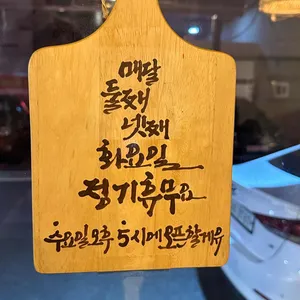 매달
둘째
넷째
화요일
정기휴무요
수요일오후 5시에오픈할게유